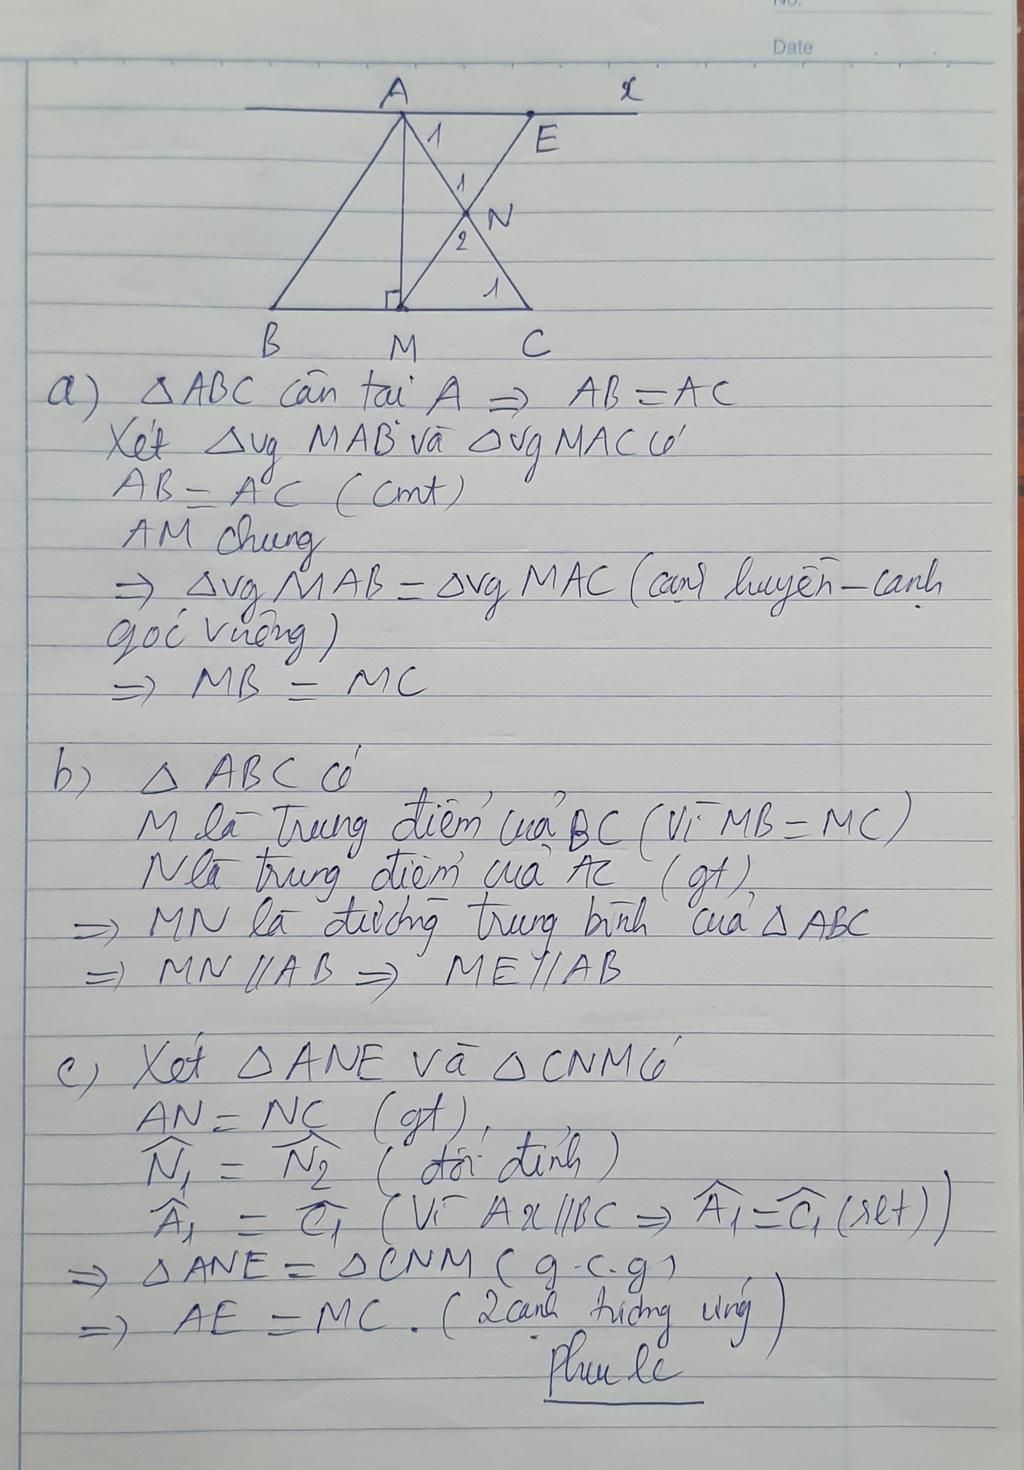 No.
Date
A x
1 E
1
N
2
1
B M C
a) △ABC cân tại A ⇒ AB = AC
Xét △vg MAB và △vg MAC có
AB = AC (cmt)
AM chung
⇒ △vg MAB = △vg MAC (cạnh huyền - cạnh
góc vuông)
⇒ MB = MC
b) △ ABC có
M là trung điểm của BC (Vì MB = MC)
N là trung điểm của AC (gt)
⇒ MN là đường trung bình của △ ABC
⇒ MN // AB ⇒ ME // AB
c) Xét △ ANE và △ CNM có
AN = NC (gt)
N̂₁ = N̂₂ (đối đỉnh)
Â₁ = Ĉ₁ (Vì Ax // BC ⇒ Â₁ = Ĉ₁ (slt))
⇒ △ANE = △CNM (g.c.g)
⇒ AE = MC. (2 cạnh tương ứng)